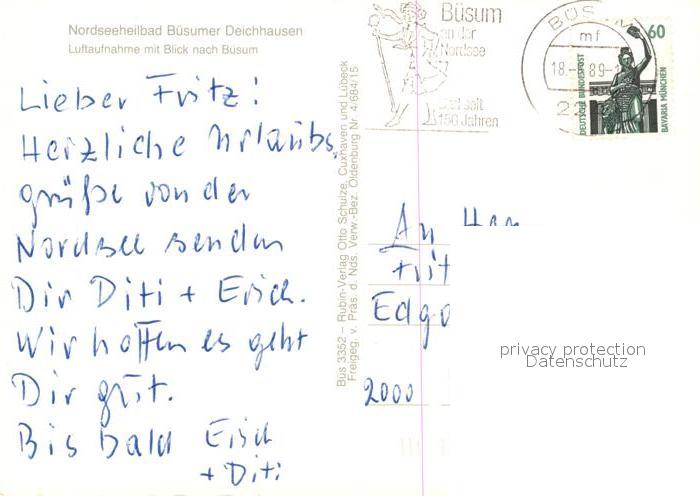 Nordseeheilbad Büsumer Deichhausen
Luftaufnahme mit Blick nach Büsum
Lieber Fritz!
Herzliche Urlaubs,
grüße von der
Nordsee senden
Dir Diti + Erich.
Wir hoffen es geht
Dir gut.
Bis bald Erich
+ Diti
Büs 3352 – Rubin-Verlag Otto Schulze, Cuxhaven und Lübeck
Freigeg. v. Präs. d. Nds. Verw.-Bez. Oldenburg Nr. 4/684/15
Büsum
an der
Nordsee
seit
150 Jahren
BÜSUM
mf
18.
89-1
22
60
DEUTSCHE BUNDESPOST
BAVARIA MÜNCHEN
An
Frit
Edgo
2000
privacy protection
Datenschutz